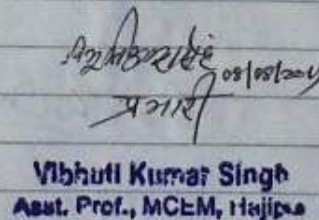 08/08/2024
प्रभारी
Vibhuti Kumar Singh
Asst. Prof., MCEM, Hajipur